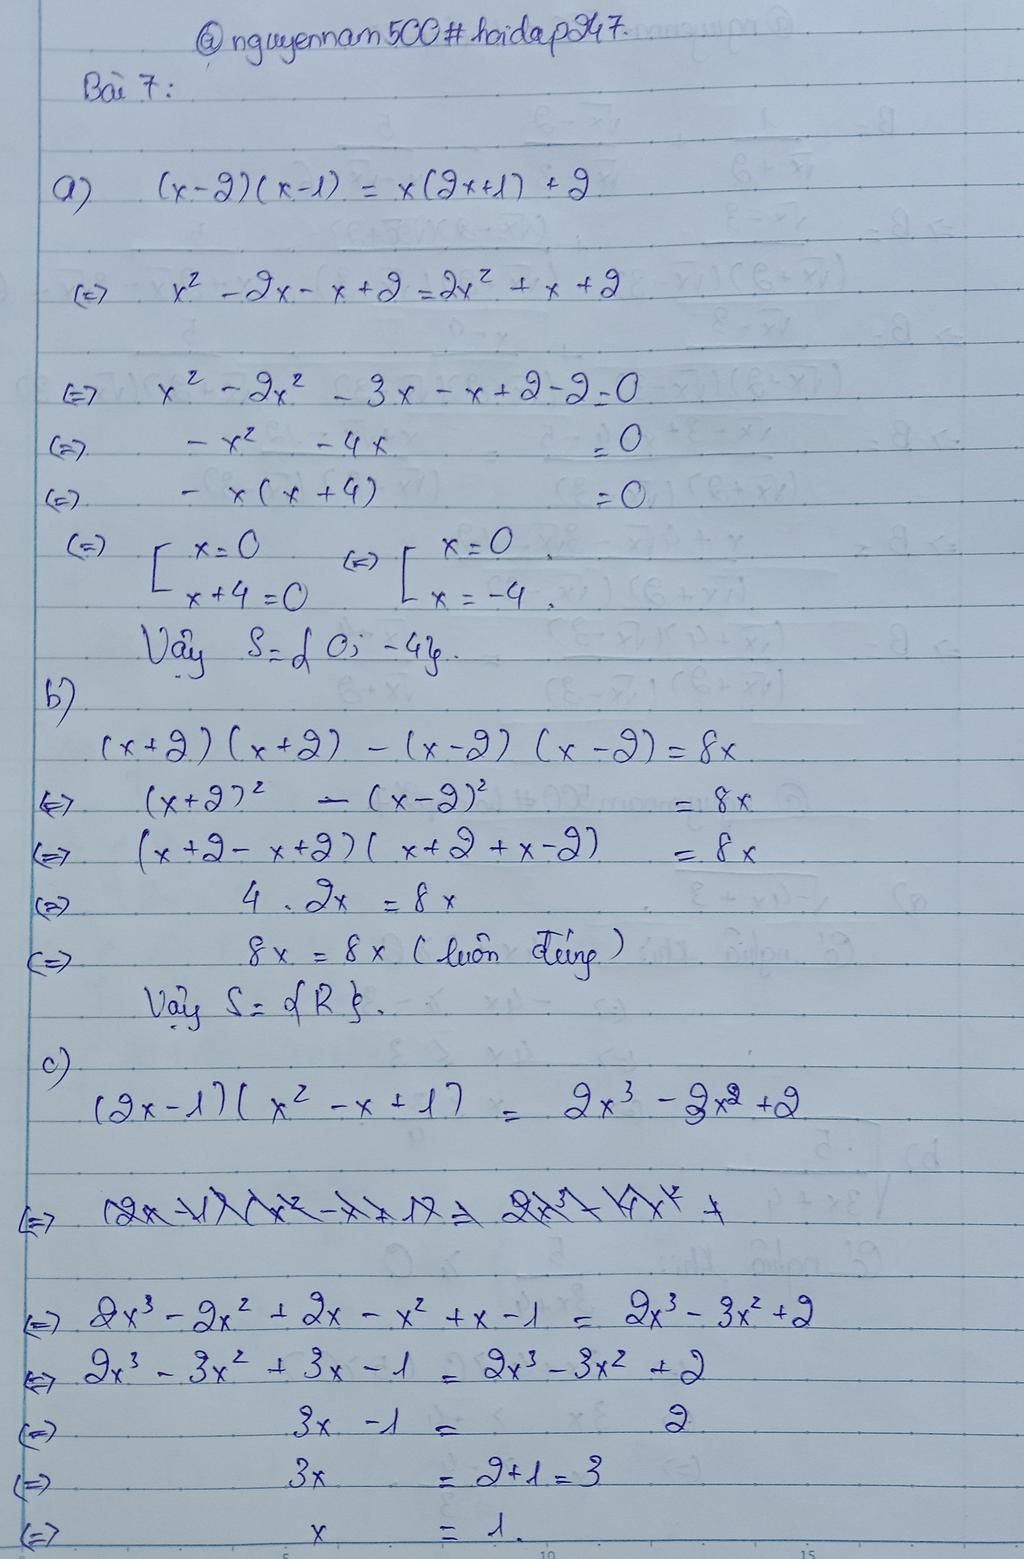 @nguyennam500#hoidap247.
Bài 7:
a) (x-2)(x-1) = x(2x+1) + 2
(=) x² - 2x - x + 2 = 2x² + x + 2
(=) x² - 2x² - 3x - x + 2 - 2 = 0
(=) - x² - 4x = 0
(=) - x(x + 4) = 0
(=) [ x = 0 (=) [ x = 0.
x + 4 = 0 x = -4.
Vậy S = { 0; -4}.
b)
(x+2)(x+2) - (x-2)(x-2) = 8x
(=) (x+2)² - (x-2)² = 8x
(=) (x+2 - x+2)(x+2 + x-2) = 8x
(=) 4 . 2x = 8x
(=) 8x = 8x (luôn đúng)
Vậy S = {R}.
c)
(2x-1)(x² - x + 1) = 2x³ - 3x² + 2
(=)
(=) 2x³ - 2x² + 2x - x² + x - 1 = 2x³ - 3x² + 2
(=) 2x³ - 3x² + 3x - 1 = 2x³ - 3x² + 2
(=) 3x - 1 = 2
(=) 3x = 2+1 = 3
(=) x = 1.
10 15